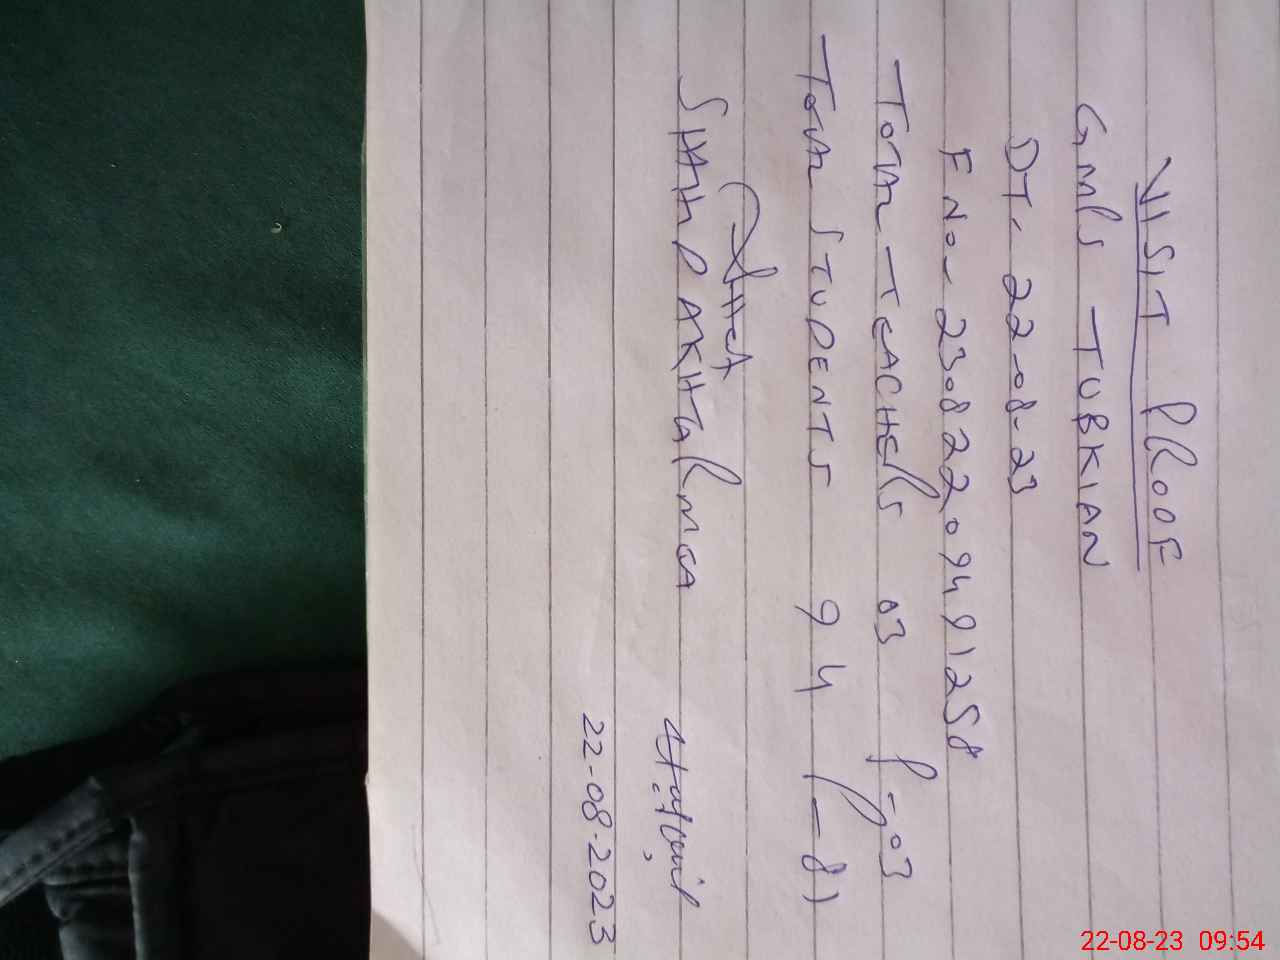 VISIT PROOF
GMPS TUBKIAN
DT. 22-08-23
F NO- 23082209491258
TOTAL TEACHERS 03 P-03
TOTAL STUDENTS 94 P-81
SHAHD AKHTAR
22-08-2023
22-08-23 09:54